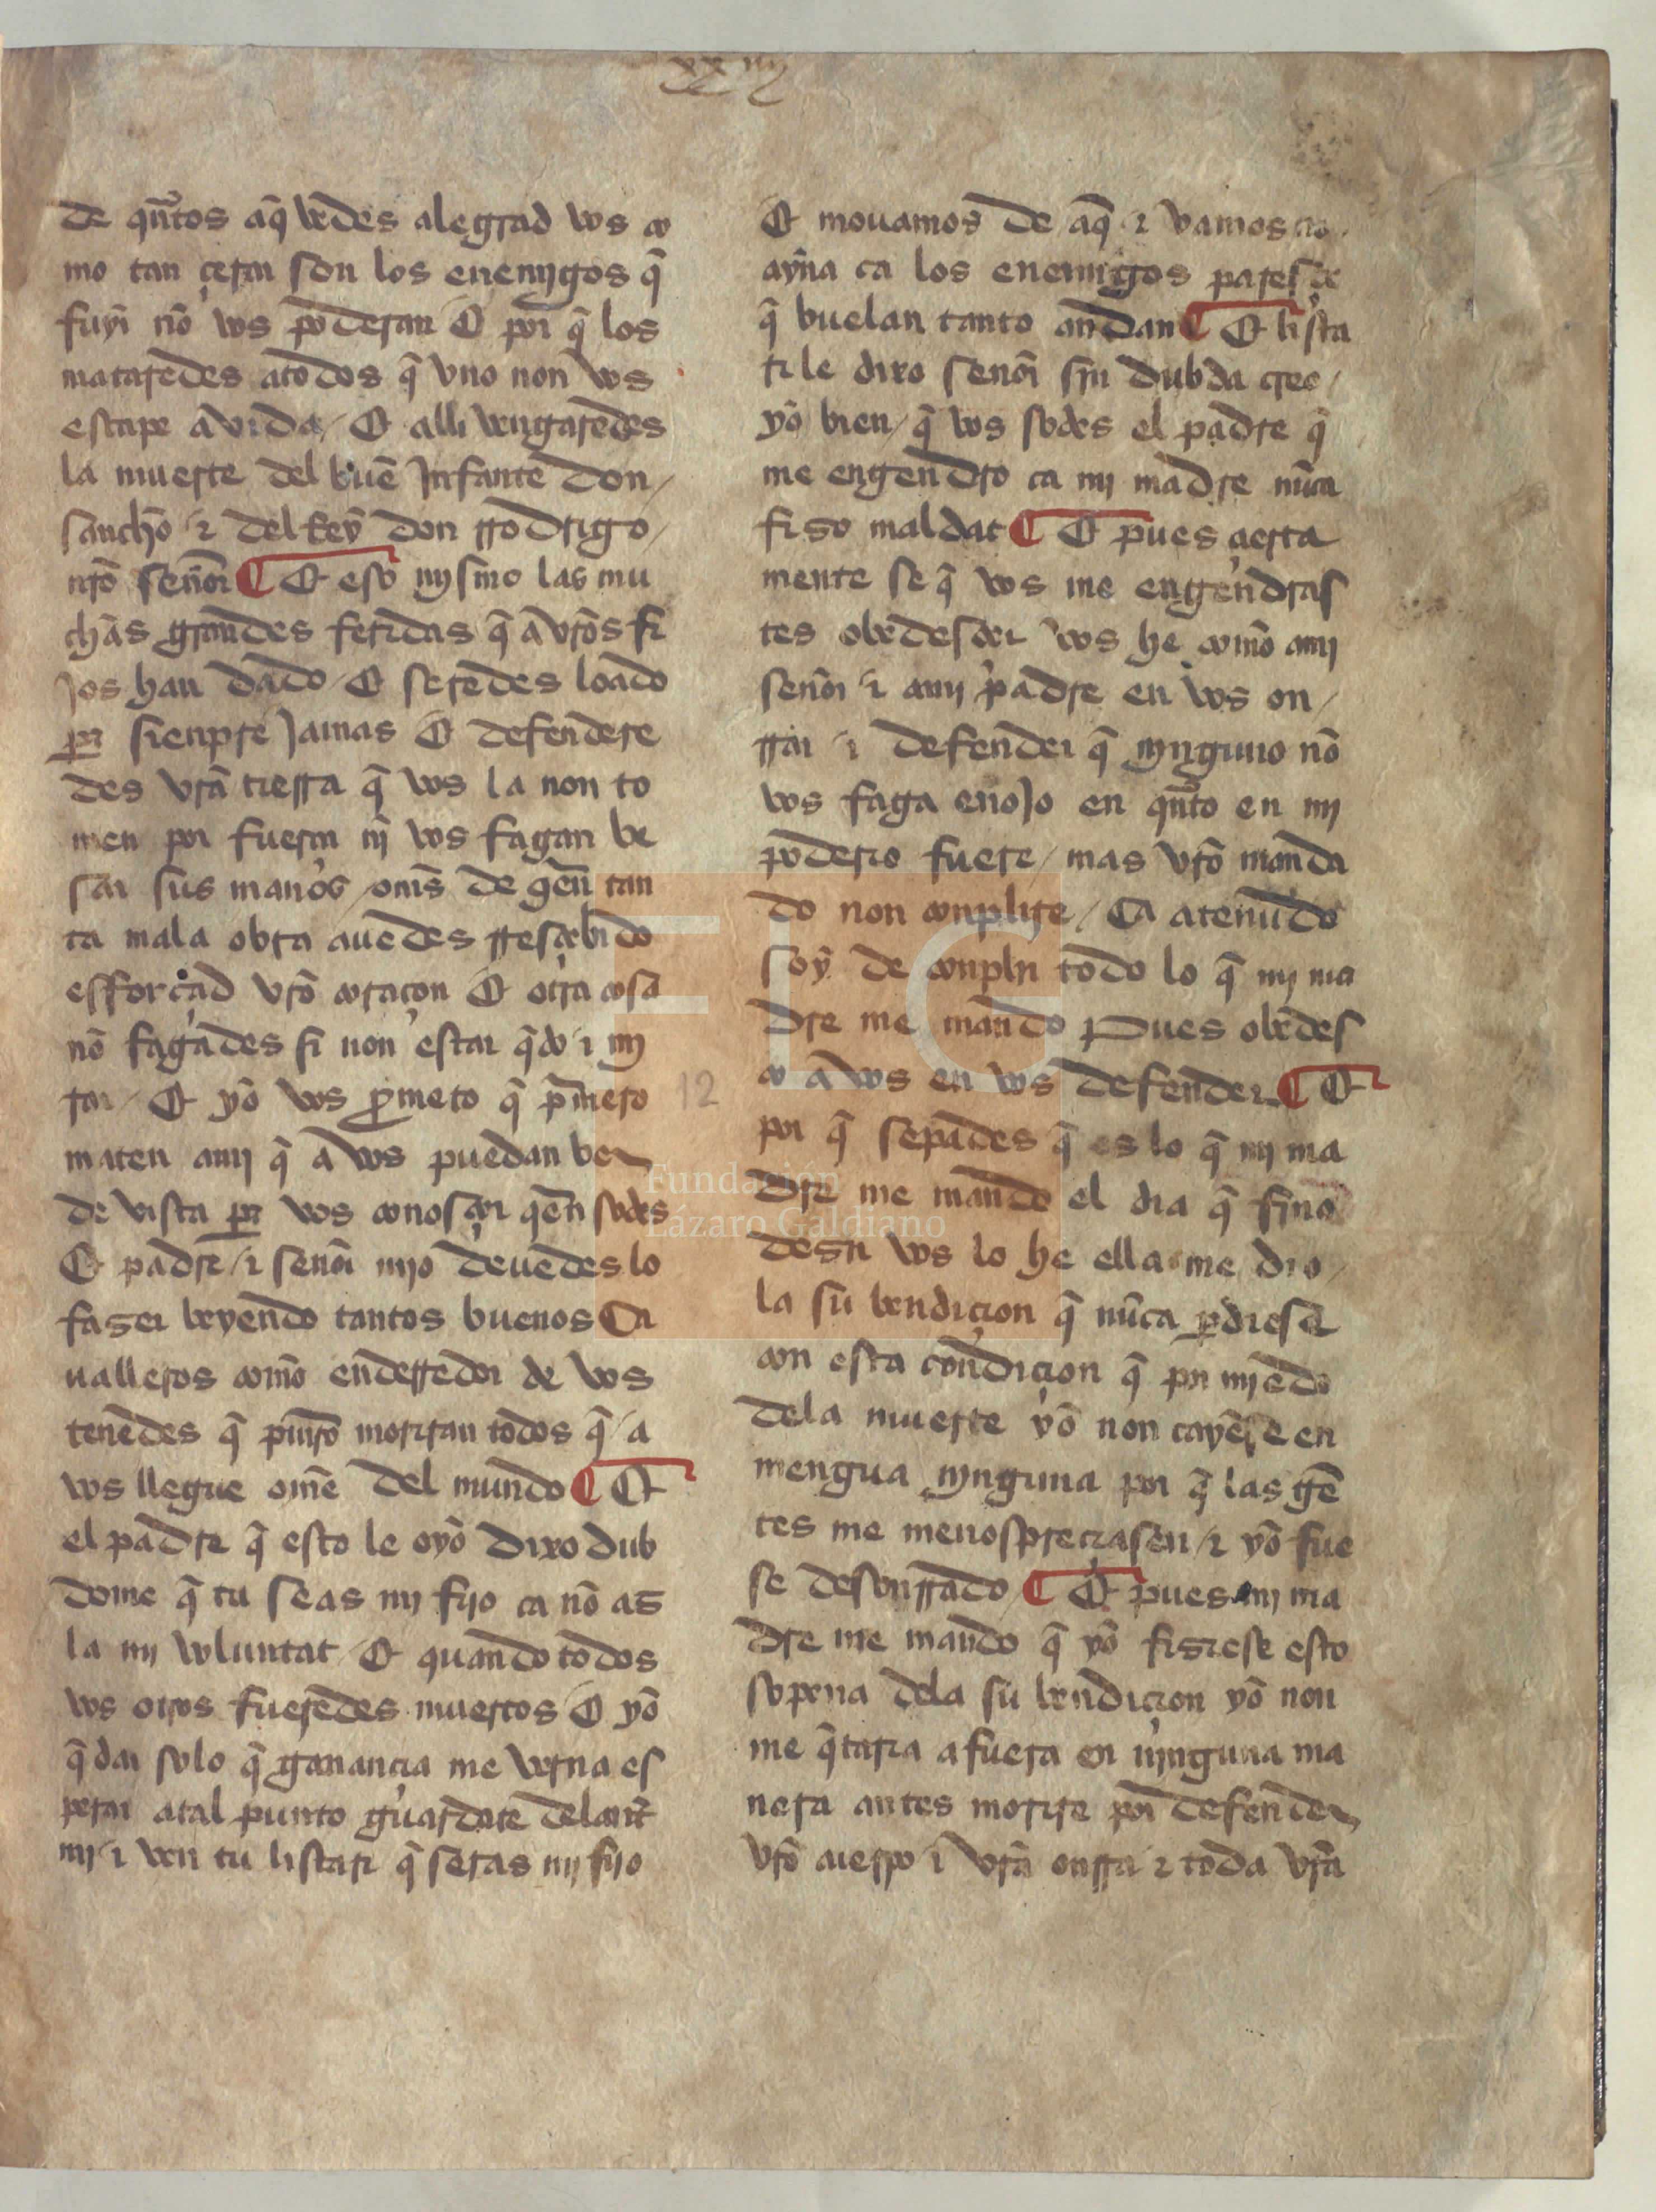 xxiiij
de qñtos aq̃ vedes alegrad vos co
mo tan çerca son los enemjgos q̃
fuyr nõ vos poderan E por q̃ los
mataredes atodos q̃ vno non vos
escape avida / Et alli vengaredes
la muerte del buẽ Jnfante don /
sancho ⁊ del Rey don rrodrigo /
nr̃o señor ¶ Et eso mjsmo las mu
chas grandes feridas q̃ a vr̃os fi
jos han dado Et seredes loado
pꝛa sienpre Jamas Et defendere
des vr̃a tierra q̃ vos la non to
men por fuerça nj̃ vos fagan be
sar sus manos / om̃s de qẽn tan
ta mala obra auedes rresçebido
esforçad vr̃o coraçon Et otra cosa
nõ fagades si non estar q̃do ⁊ mj
rar / Et yo vos ꝓmeto q̃ p̃mero
maten amj q̃ a vos puedan ber
de vista pꝛa vos conosçer qẽn sodes
Et padre / ⁊ señor mjo deuedes lo
faser beyendo tantos buenos Ca
ualleros com̃o enderredor de vos
tenedes q̃ pm̃ro moriran todos q̃ / a
vos llegue om̃e del mundo ¶ Et
el padre q̃ esto le oyo dixo dub
dome q̃ tu seas mj fijo ca nõ as
la mj voluntat / Et quando todos
vos otros fueredes muertos Et yo
q̃dar solo q̃ ganançia me verna es
perar atal punto guardate delant̃
mj ⁊ ven tu listari q̃ seras mj fijo
Et mouamos de aq̃ ⁊ vamos nos
ayna ca los enemigos paresçe
q̃ buelan tanto andan ¶ Et lista
ri le dixo señor sin dubda creo /
yo bien / q̃ vos sodes el padre q̃
me engendro ca mj madre nũca
fiso maldat ¶ Et pues çierta
mente se q̃ vos me engendras
tes obedesçer vos he com̃o amj
señor ⁊ amj padre en vos on /
rrar ⁊ defender q̃ njnguno nõ
vos faga enojo en qñto en mj
poderio fuere / mas vr̃o manda
do non conplire / Ca atenudo
soy de conplir todo lo q̃ mj ma
dre me mando Pues obedes
co a vos en vos defender ¶ Et
por q̃ sepades q̃ es lo q̃ mj ma
dre me mando el dia q̃ fino
desir vos lo he ella me dio /
la su bendiçion q̃ nũca ꝑdiese
con esta condiçion q̃ por mjedo
dela muerte yo non cayese en
mengua njnguna por q̃ las gẽ
tes me menospreçiasen / ⁊ yo fue
se desonrrado ¶ Et pues mj ma
dre me mando q̃ yo fisiese esto
sopena dela su bendiçion yo non
me q̃taria afuera en njnguna ma
nera antes morire por defender
vr̃o cuerpo ⁊ vr̃a onrra ⁊ toda vr̃a
12
FLG
Fundación
Lázaro Galdiano